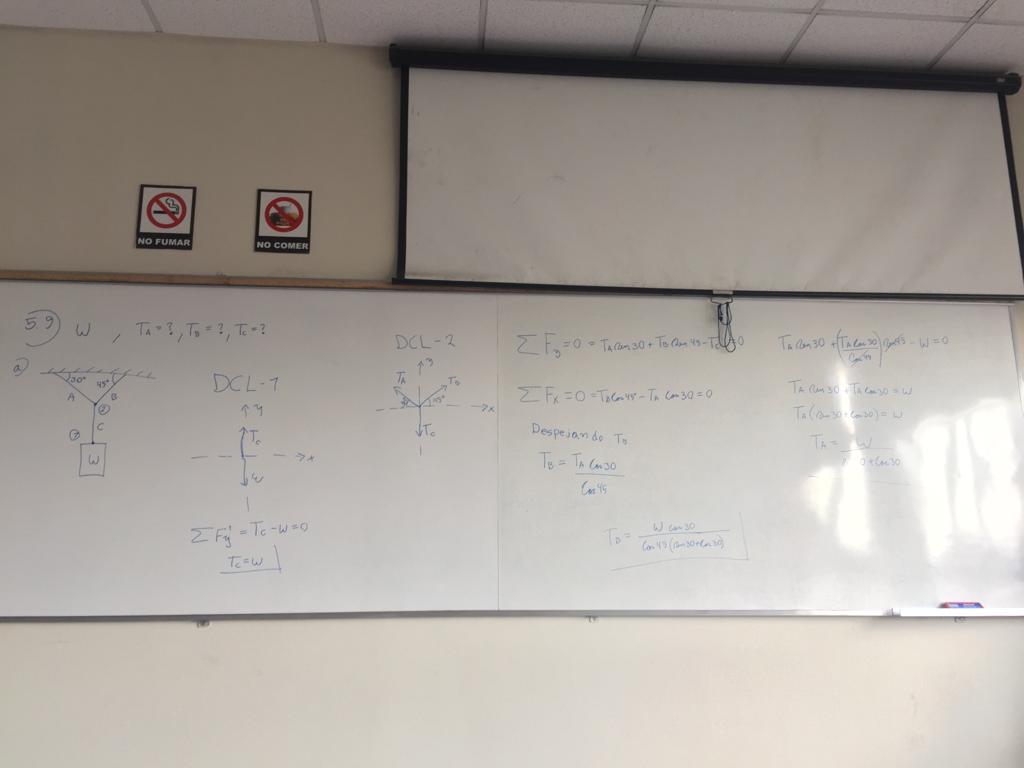 NO FUMAR
NO COMER
5.9) W , TA = ? , TB = ? , TC = ?
a)
30° 45°
A B
C
W
DCL-1
y
Tc
x
W
ΣFy = Tc - W = 0
Tc = W
DCL-2
y
TA TB
45°
x
Tc
ΣFy = 0 = TA sen30 + TB sen45 - Tc = 0
ΣFx = 0 = TB cos45 - TA cos30 = 0
Despejando TB
TB = TA cos30 / cos45
TB = W cos30 / cos45 (sen30 + cos30)
TA sen30 + (TA cos30 / cos45) sen45 - W = 0
TA sen30 + TA cos30 = W
TA (sen30 + cos30) = W
TA = W / 0 + cos30